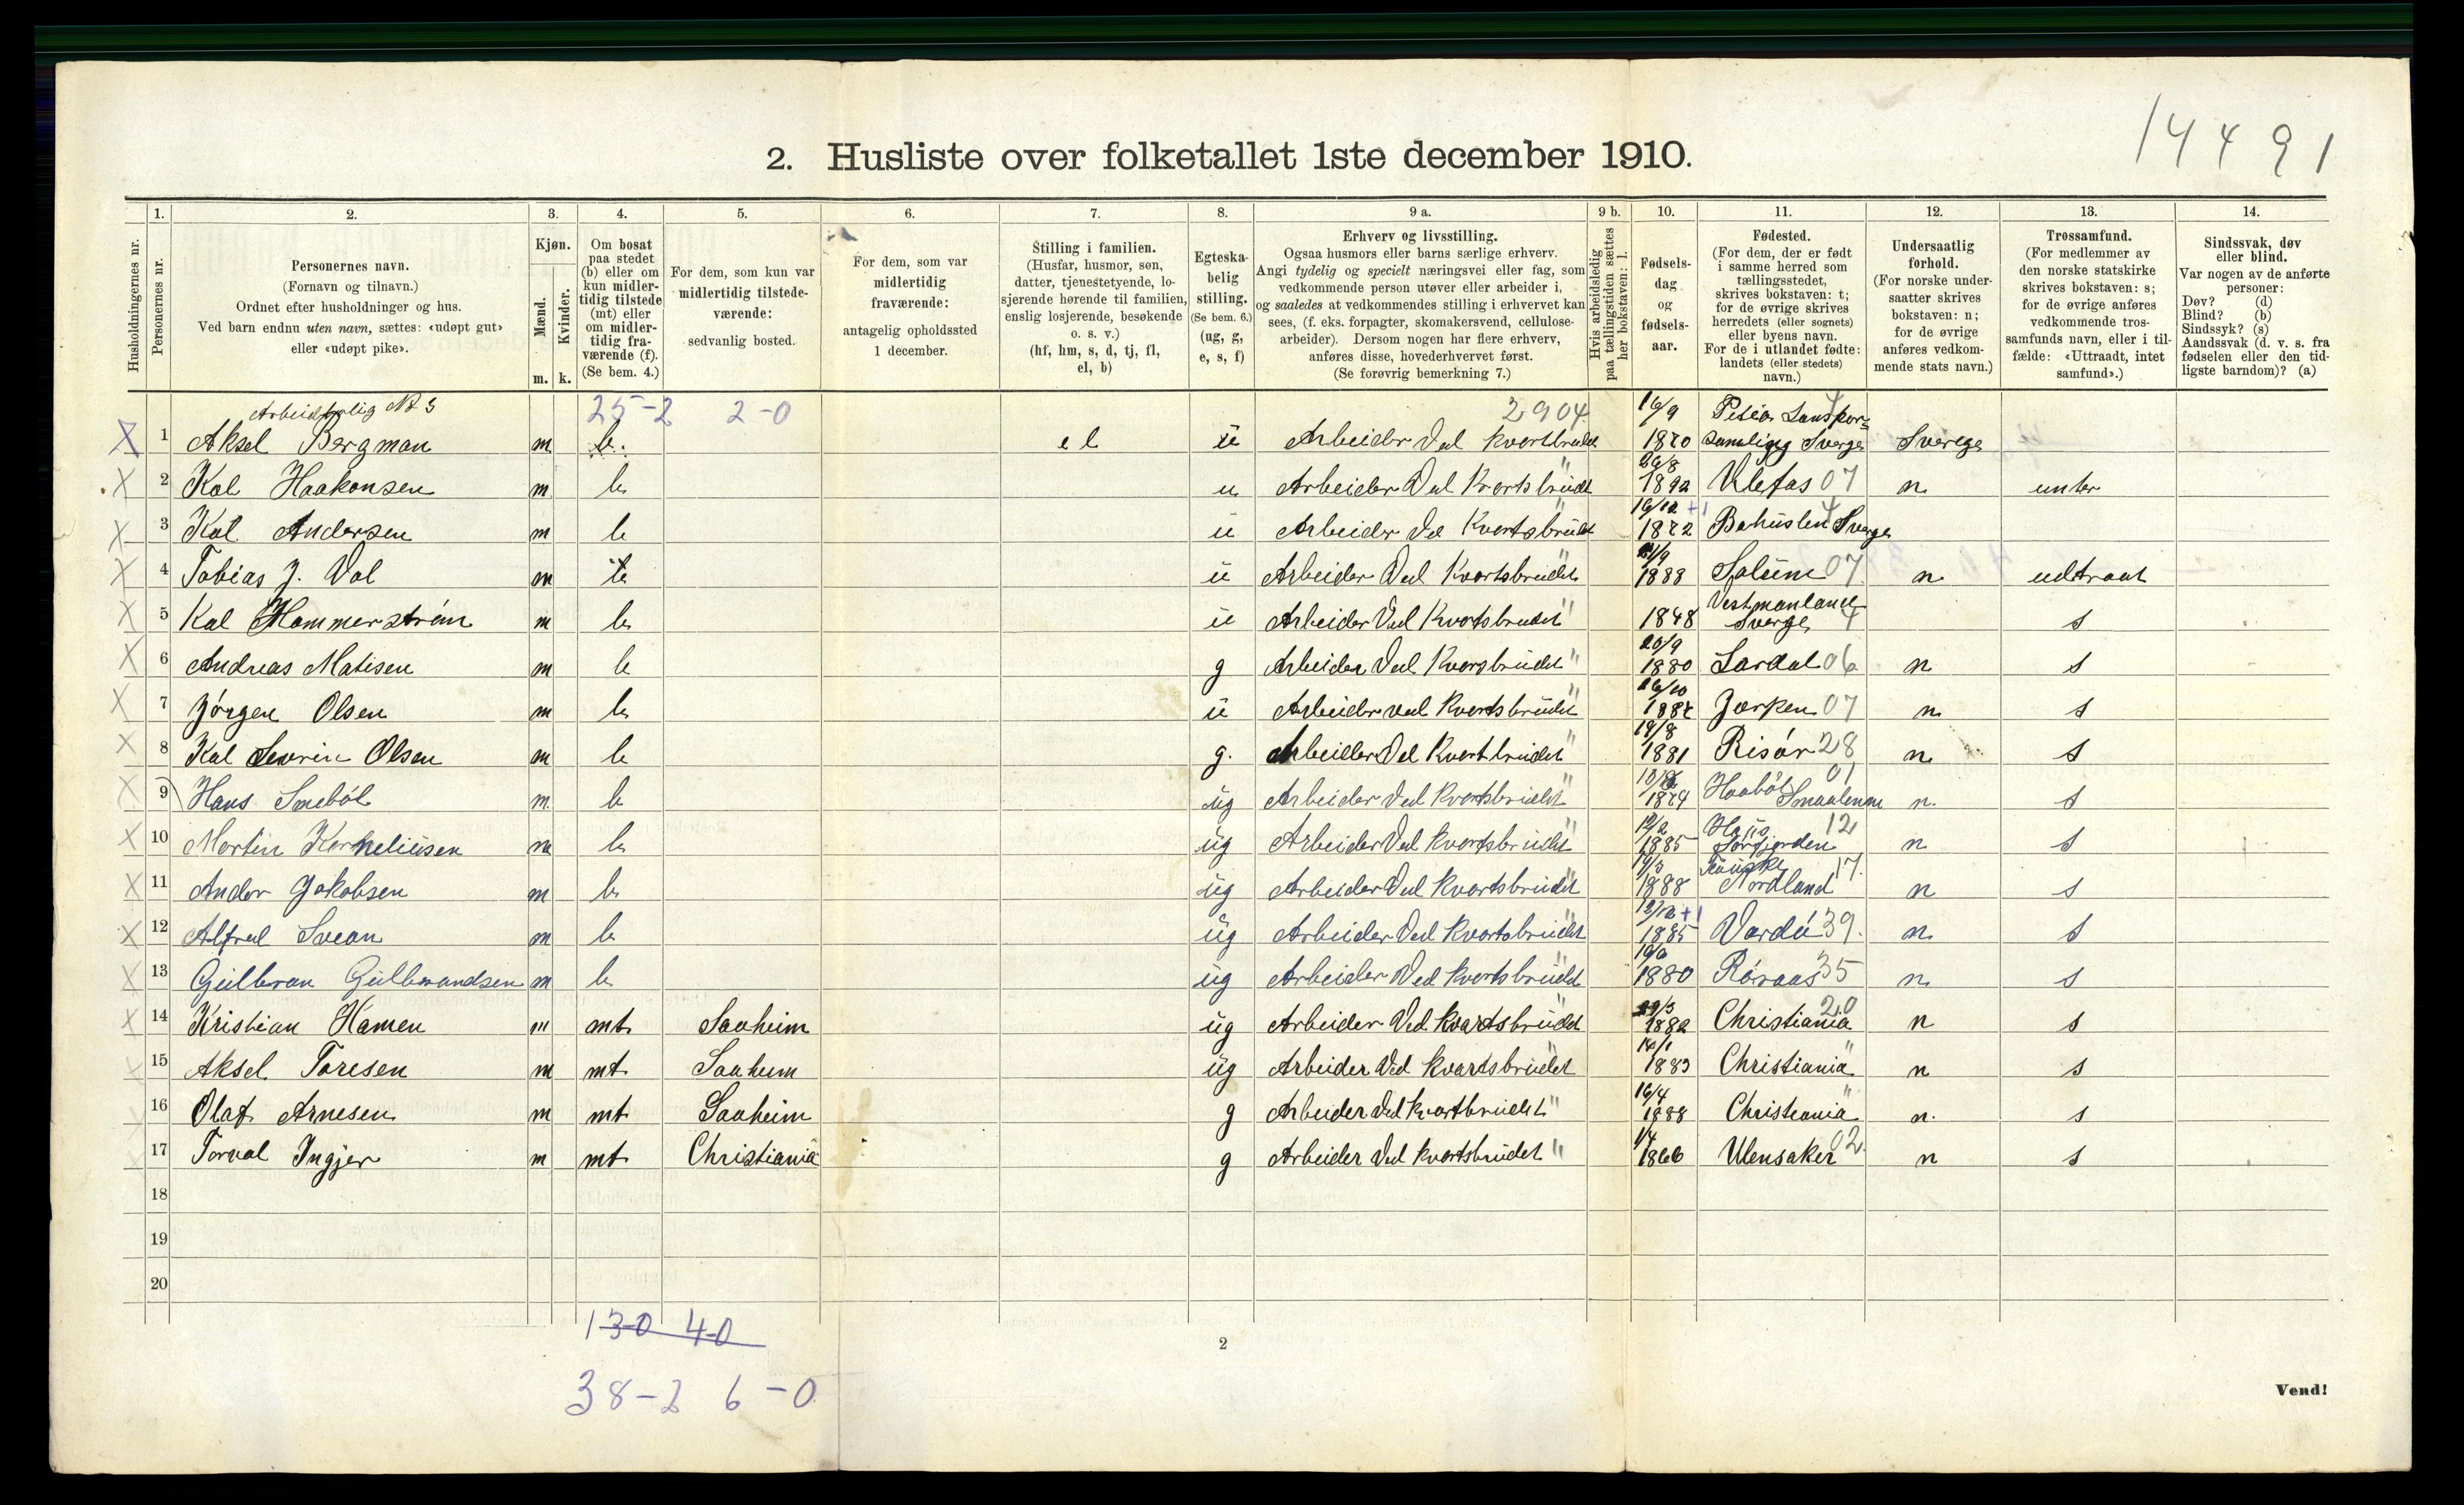 14491
2. Husliste over folketallet 1ste december 1910.
Husholdningernes nr.
1. Personernes nr.
2. Personernes navn. (Fornavn og tilnavn.) Ordnet efter husholdninger og hus. Ved barn endnu uten navn, sættes: «udøpt gut» eller «udøpt pike».
3. Kjøn. Mænd. Kvinder. m. k.
4. Om bosat paa stedet (b) eller om kun midlertidig tilstede (mt) eller om midlertidig fraværende (f). (Se bem. 4.)
5. For dem, som kun var midlertidig tilstedeværende: sedvanlig bosted.
6. For dem, som var midlertidig fraværende: antagelig opholdssted 1 december.
7. Stilling i familien. (Husfar, husmor, søn, datter, tjenestetyende, losjerende hørende til familien, enslig losjerende, besøkende o. s. v.) (hf, hm, s, d, tj, fl, el, b)
8. Egteskabelig stilling. (Se bem. 6.) (ug, g, e, s, f)
9 a. Erhverv og livsstilling. Ogsaa husmors eller barns særlige erhverv. Angi tydelig og specielt næringsvei eller fag, som vedkommende person utøver eller arbeider i, og saaledes at vedkommendes stilling i erhvervet kan sees, (f. eks. forpagter, skomakersvend, cellulosearbeider). Dersom nogen har flere erhverv, anføres disse, hovederhvervet først. (Se forøvrig bemerkning 7.)
9 b. Hvis arbeidsledig paa tællingstiden sættes her bokstaven: l.
10. Fødselsdag og fødselsaar.
11. Fødested. (For dem, der er født i samme herred som tællingsstedet, skrives bokstaven: t; for de øvrige skrives herredets (eller sognets) eller byens navn. For de i utlandet fødte: landets (eller stedets) navn.)
12. Undersaatlig forhold. (For norske undersaatter skrives bokstaven: n; for de øvrige anføres vedkommende stats navn.)
13. Trossamfund. (For medlemmer av den norske statskirke skrives bokstaven: s; for de øvrige anføres vedkommende trossamfunds navn, eller i tilfælde: «Uttraadt, intet samfund».)
14. Sindssvak, døv eller blind. Var nogen av de anførte personer: Døv? (d) Blind? (b) Sindssyk? (s) Aandssvak (d. v. s. fra fødselen eller den tidligste barndom)? (a)
25-2 2-0 2904
X 1 Aksel Bergman m b. el u Arbeider Ved 16/9 Sverge Sverige
X 2 Kal Haakonsen m b u Arbeider Ved Kvartsbrudt 1892 Ulefos 07 n
X 3 Kal Andersen m b u Arbeider Ved Kvartsbrudt +1 1872 Bahuslen Sverge
X 4 Tobias J. Dal m b u Arbeider Ved Kvartsbrudet 1888 Solum 07 n udtraat
X 5 Kal Hammerström m b u Arbeider Ved Kvartsbrudet " 1848 Vestmanland Sverge 4 s
X 6 Andreas Matisen m b g Arbeider Ved Kvarsbrudet " 20/9 1880 Lardal 06 n s
X 7 Jørgen Olsen m b u Arbeider ved Kvartsbrudet " 26/10 07 n s
X 8 Kal Severin Olsen m b g. Arbeider Ved Kvartbrudet " 1881 Risør 28 n s
X 9 Hans m b ug Arbeider Ved Kvartsbrudet " 1874 Haabøl Smaalenene 01 n. s
X 10 Martin Korneliusen m b ug Arbeider Ved Kvartsbrudet " 1885 12 n s
X 11 Andor Jakobsen m b ug Arbeider Ved Kvartsbrudet " 1888 Nordland 17. n s
X 12 Alfred Svean m b ug Arbeider Ved Kvartsbrudet " 12/12 +1 1885 Vardø 39. n s
X 13 Gulbran Gulbrandsen m b ug Arbeider Ved Kvartsbrudet " 1880 Røraas 35 n s
X 14 Kristian Hamen m mt Saaheim ug Arbeider Ved Kvartsbrudet " 1882 Christiania 20 n s
X 15 Aksel Toresen m mt Saaheim ug Arbeider Ved Kvartsbrudet " 1883 Christiania " n s
16 Olaf Arnesen m mt Saaheim g Arbeider Ved Kvartbrudet " 16/4 1888 Christiania " n. s
17 Torval Ingjer m mt Christiania g Arbeider Ved Kvartsbrudet " 1/4 1866 Ulensaker 02 n s
18
19
20
130 40
2
38-2 6-0
Vend!